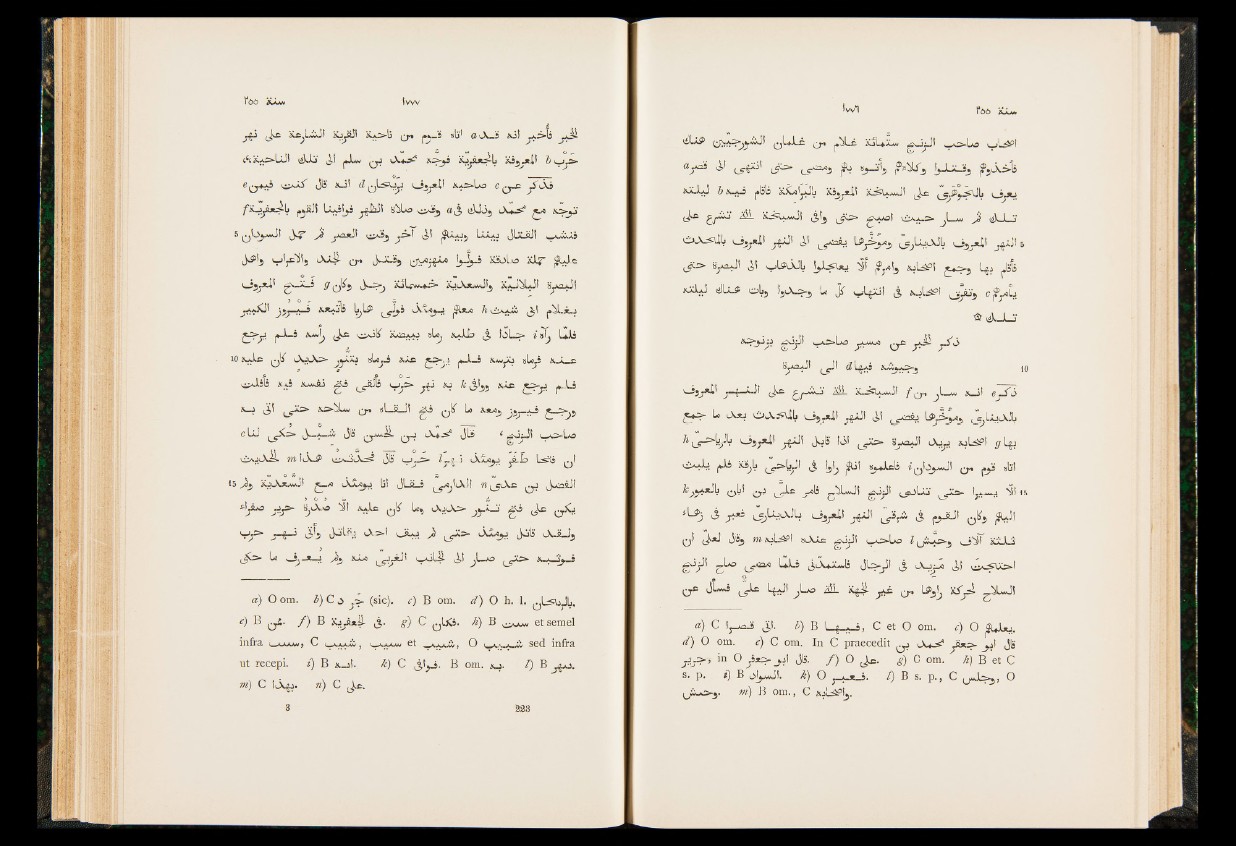 سنة ٢٥٥ ١٧٧٦
اصحاب صاحب الزنج ستّمائة غلام من غلمان الشورجيّين هناك
فأخذوهم وقتلوا وكلاءهم وأتوه بهم ومضى حتى انتهى الى قصر a
يعرف بالجوهرى على السبخة المعروفة بالبرامكة فأقام فيه b ليلته
تلك ثم سار حيث اصبح حتى وافى السبخة التى تشرع على
5 النهر المعروف بالديناري ومؤخّرها يفضى الى النهر المعروف بالمحدث
فأقام بها وجمع اصحابه وامرهم ألّا يعجلوا بالذهاب الى البصرة حتى
يأمرهم c وتفرّق اصحابه فى انتهاب كلّ ما وجدوا وبات هناك ليلته
تلك ۞
ذكر الخبر عن مسير صاحب الزنج بزنوجه
10 وجيوشه فيها d الى البصرة
ذكر e انه سار من f السبخة التى تشرع على النهر المعروف
بالديناري ومؤخّرها يفضى الى النهر المعروف بالمحدث بعد ما جمع
بها g اصحابه يريد البصرة حتى اذا قابل النهر المعروف بالرياحى h
اتاه قوم من السودان i فأعلموه انهم راوا فى الرياحى بارقة فلم يلبث
15 الّا يسيرا حتى تنادى الزنج السلاح فأمر علىّ بن ابان بالعبور k
اليهم وكان القوم فى شرقى النهر المعروف بالديناري فعبر فى زهاء
ثلثة آلاف وحبس l صاحب الزنج عنده اصحابه m وقال لعلى ان
احتجت الى مزيد فى الرجال فاستمدّنى فلمّا مضى صاح الزنج
السلاح لحركة راوها من غير الجهة التى صار اليها علىّ فسأل عن
a) C الى قصرا. b) B فيها, C et O om. c) O يعلمهم.
d) O om. e) C om. In C praecedit قال ابو جعفر محمد بن
جرير, in O قال ابو جعفر. f) O على. g) C om. h) B et C
s. p. i) B السواد. k) O فعبر. l) B s. p., C وجلس, O
وحبش. m) B om., C واصحابه.
سنة ٢٥٥ ١٧٧٧
الخبر فأخبر انه قد a اتاه قوم من ناحية القرية الشارعة على نهر
حرب b المعروفة بالجعفرية فوجّه محمّد بن سلم الى تلك الناحية،
فذكر عن c صاحبه المعروف بريحان d انه قال كنت فيمن e
توجّه مع محمد وذلك فى a وقت صلاة الظهر فوافينا القوم بالجعفريّة f
5 فنشب القتال بيننا وبينهم الى آخر وقت العصر ثم حمل السودان
عليهم حملة صادقة فولّوا منهزمين وقتل من الجند والاعراب واهل
البصرة البلاليّة والسعديّة خمسمائة رجل وكان g فتح المعروف
بغلام ابى شيث h معهم يومئذ فولّى هاربا فأتبعه فيروز الكبير
فلمّا رآه i جادّا فى طلبه رماه ببيضة كانت على رأسه فلم يرجع
10 عنه فرماه بترسه فلم يرجع عنه فرماه بتنّور حديد كان عليه
فلم يرجع عنه ووافى به k نهر حرب فألقى فتح نفسه فيه فأفلت
ورجع فيروز ومعه ما كان فتح القاه من سلاحه حتى اتى به
صاحب الزنج، قال محمد بن الحسن قال شبل حكى لنا e
ان فتحا طفر يومئذ نهر l حرب قال فحدّثت هذا m الحديث
15 الفضل بن عدى n الدارمىّ فقال انا يومئذ مع السعديّة ولم
يكن على فتح تنّور حديد وما كان عليه الّا صدرة حرير صفراء
ولقد قاتل يومئذ حتى لم يبق احد يقاتل وأتى نهر حرب
فوثبه حتى صار الى الجانب الغربى منه ولم يعرف ما حكى
a) O om. b) C د جر (sic). c) B om. d) O h. l. بالريحان.
e) B ممّن. f) B فى الجعفرية. g) C فكان. h) B سىث et semel
infra , C شبيب, et شبيب, O شبيب sed infra
ut recepi. i) B انه. k) C فوافى. B om. به. l) B بنهر.
m) C بهذا. n) C على.
3 223